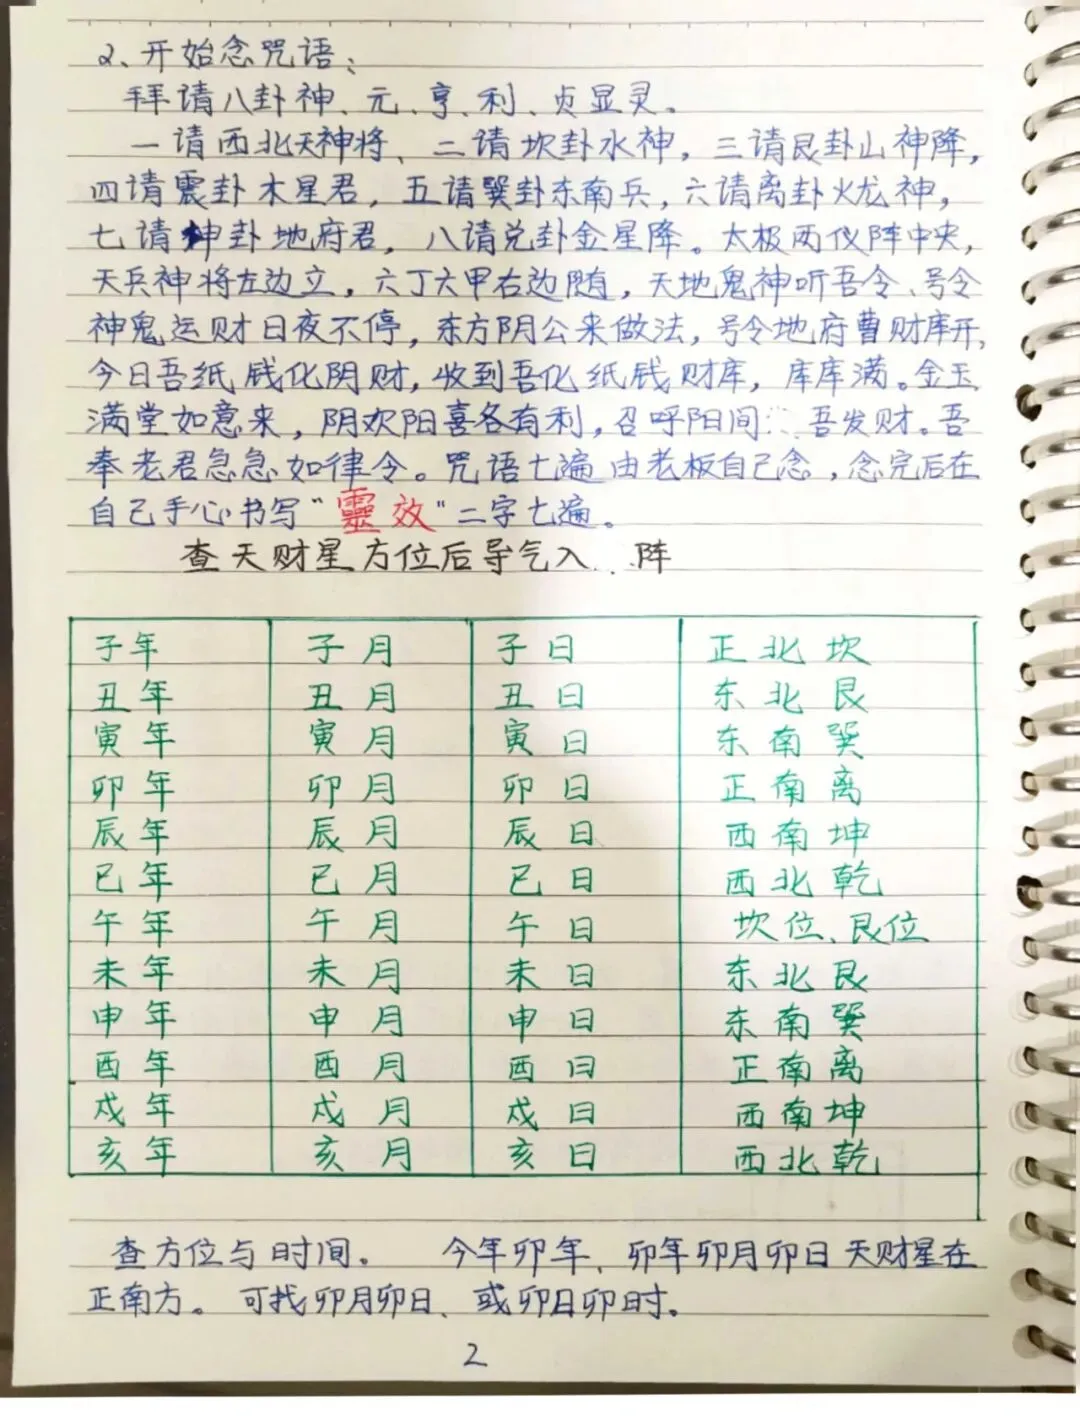 2、开始念咒语：
拜请八卦神、元、亨、利、贞显灵。
一请西北天神将、二请坎卦水神，三请艮卦山神降，
四请震卦木星君，五请巽卦东南兵，六请离卦火龙神，
七请坤卦地府君，八请兑卦金星降。太极两仪阵中央，
天兵神将左边立，六丁六甲右边随，天地鬼神听吾令、号令
神鬼运财日夜不停，东方阴公来做法，号令地府曹财库开，
今日吾纸钱化阴财，收到吾化纸钱财库，库库满。金玉
满堂如意来，阴欢阳喜各有利，召呼阳间 吾发财。吾
奉老君急急如律令。咒语七遍由老板自己念，念完后在
自己手心书写"靈效"二字七遍。
查天财星方位后导气入 阵
子年 子月 子日 正北坎
丑年 丑月 丑日 东北艮
寅年 寅月 寅日 东南巽
卯年 卯月 卯日 正南离
辰年 辰月 辰日 西南坤
巳年 巳月 巳日 西北乾
午年 午月 午日 坎位、艮位
未年 未月 未日 东北艮
申年 申月 申日 东南巽
酉年 酉月 酉日 正南离
戌年 戌月 戌日 西南坤
亥年 亥月 亥日 西北乾
查方位与时间。 今年卯年、卯年卯月卯日天财星在
正南方。可找卯月卯日、或卯日卯时。
2